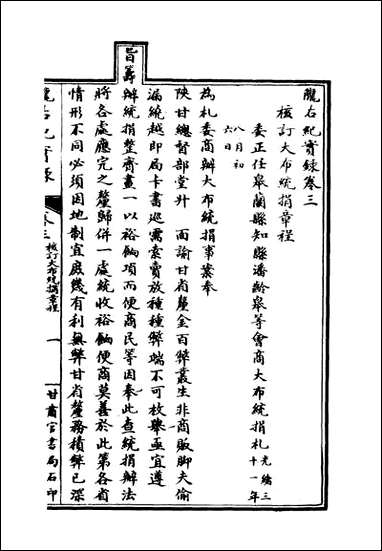 隴右紀實錄卷三
核訂大布統捐章程
委正任皋蘭縣知縣潘齡皋等會商大布統捐札 光緒三十一年
八月初六日
為札委商辦大布統捐事案奉
陝甘總督部堂升 面諭甘省釐金百弊叢生非商販腳夫偷
漏繞越即局卡書巡需索賣放種種弊端不可枚舉亟宜遵
旨籌
辦統捐整齊畫一以裕餉項而便商民等因奉此查統捐辦法
將各處應完之釐歸併一處統收裕餉便商莫善於此第各省
情形不同必須因地制宜庶幾有利無弊甘省釐務積弊已深
隴右紀實錄 卷三 核訂大布統捐章程 一 甘肅官書局石印